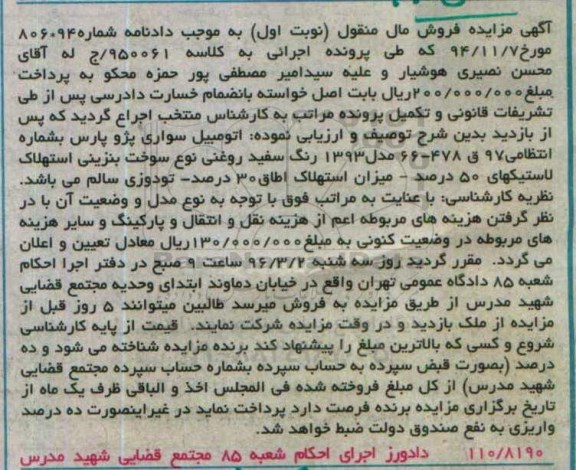 آگهی مزایده فروش مال منقول (نوبت اول) به موجب دادنامه شماره۸۰۶۰۹۴
مورخ۹۴/۱۱/۷ که طی پرونده اجرائی به کلاسه ۹۵۰۰۶۱/ج له آقای
محسن نصیری هوشیار و علیه سیدامیر مصطفی پور حمزه محکو به پرداخت
مبلغ۲۰۰/۰۰۰/۰۰۰ریال بابت اصل خواسته بانضمام خسارت دادرسی پس از طی
تشریفات قانونی و تکمیل پرونده مراتب به کارشناس منتخب اجراع گردید که پس
از بازدید بدین شرح توصیف و ارزیابی نموده: اتومبیل سواری پژو پارس بشماره
انتظامی۹۷ ق ۴۷۸-۶۶ مدل۱۳۹۳ رنگ سفید روغنی نوع سوخت بنزینی استهلاک
لاستیکهای ۵۰ درصد - میزان استهلاک اطاق۳۰ درصد- تودوزی سالم می باشد.
نظریه کارشناسی: با عنایت به مراتب فوق با توجه به نوع مدل و وضعیت آن با در
نظر گرفتن هزینه های مربوطه اعم از هزینه نقل و انتقال و پارکینگ و سایر هزینه
های مربوطه در وضعیت کنونی به مبلغ۱۳۰/۰۰۰/۰۰۰ریال معادل تعیین و اعلان
می گردد. مقرر گردید روز سه شنبه ۹۶/۳/۲ ساعت ۹ صبح در دفتر اجرا احکام
شعبه ۸۵ دادگاه عمومی تهران واقع در خیابان دماوند ابتدای وحدیه مجتمع قضایی
شهید مدرس از طریق مزایده به فروش میرسد طالبین میتوانند ۵ روز قبل از
مزایده از ملک بازدید و در وقت مزایده شرکت نمایند. قیمت از پایه کارشناسی
شروع و کسی که بالاترین مبلغ را پیشنهاد کند برنده مزایده شناخته می شود و ده
درصد (بصورت قبض سپرده به حساب سپرده بشماره حساب سپرده مجتمع قضایی
شهید مدرس) از کل مبلغ فروخته شده فی المجلس اخذ و الباقی ظرف یک ماه از
تاریخ برگزاری مزایده برنده فرصت دارد پرداخت نماید در غیراینصورت ده درصد
واریزی به نفع صندوق دولت ضبط خواهد شد.
۱۱۰/۸۱۹۰ دادورز اجرای احکام شعبه ۸۵ مجتمع قضایی شهید مدرس